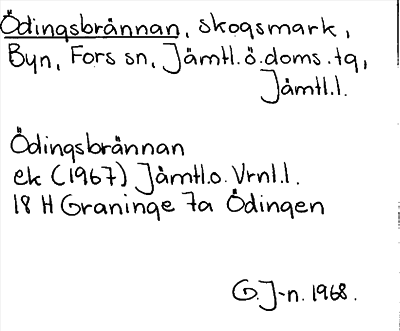 Ödingsbrännan, skogsmark,
Byn, Fors sn, Jämtl.ö.doms.tg,
Jämtl.l.
Ödingsbrännan
ek (1967) Jämtl.o. Vrnl.l.
18 H Graninge 7a Ödingen
G.J-n. 1968.